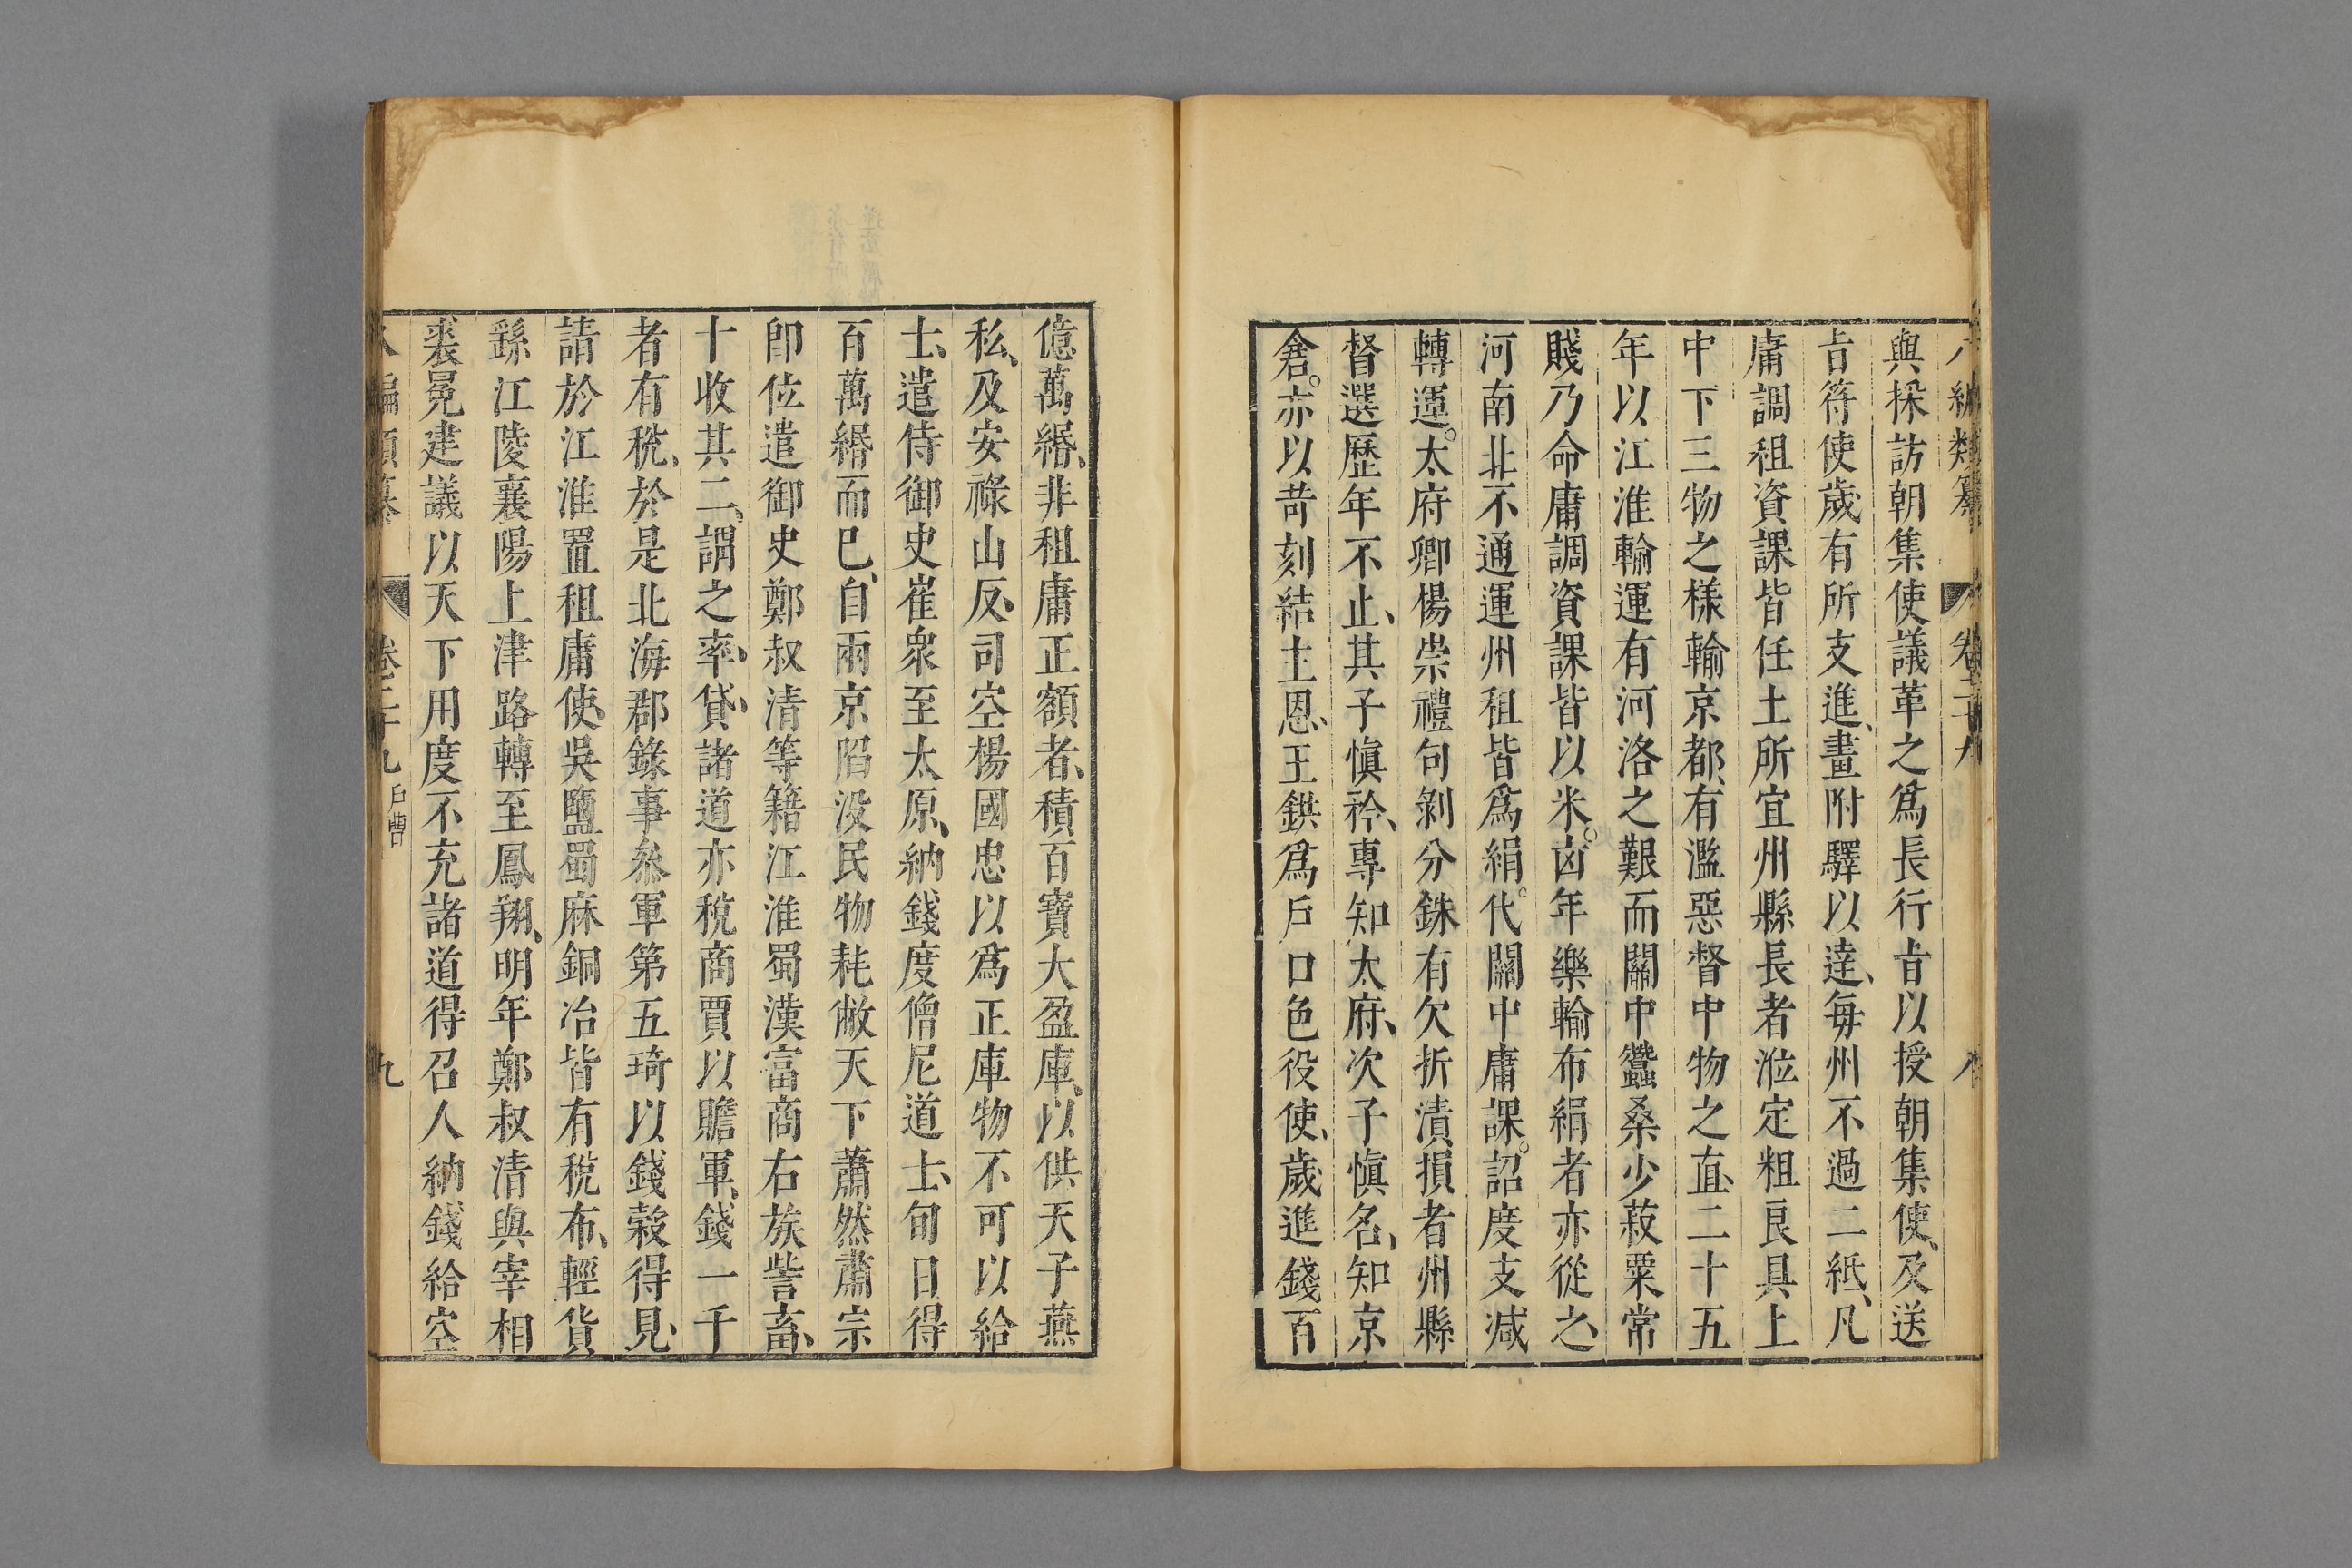 八編類纂 卷二十九 八
與採訪朝集使議革之爲長行㫖以授朝集使、及送
㫖符使歲有所支進、畫附驛以達、每州不過二紙、凡
庸調租資課皆任土所宜州縣長者涖定粗良具上
中下三物之樣輸京都、有濫惡督中物之直、二十五
年以江淮輸運有河洛之艱而關中蠶桑少菽粟常
賤乃命庸調資課皆以米。凶年樂輸布絹者亦從之、
河南北不通運州租皆爲絹。代關中庸課。詔度支减
轉運。太府卿楊崇禮句剝分銖有欠折漬損者州縣
督選歷年不止、其子愼衿、專知太府、次子愼名、知京
倉。亦以苛刻結主恩、王鉷爲戶口色役使、歲進錢百
億萬緡、非租庸正額者、積百寶大盈庫、以供天子燕
私、及安祿山反、司空楊國忠以爲正庫物不可以給
士、遣侍御史崔衆至太原、納錢度僧尼道士、旬日得
百萬緡而已、自兩京陷没民物耗敝天下蕭然肅宗
卽位遣御史鄭叔清等籍江淮蜀漢富商右族訾畜、
十收其二。謂之率、貸、諸道亦稅商賈以贍軍、錢一千
者有稅、於是北海郡錄事叅軍第五琦以錢穀得見、
請於江淮置租庸使、吳鹽蜀麻銅冶皆有稅布、輕貨
繇江陵襄陽上津路轉至鳳翔、明年鄭叔清與宰相
裴冕建議以天下用度不充諸道得召人納錢給空
八編類纂 卷二十九 戶曹 九